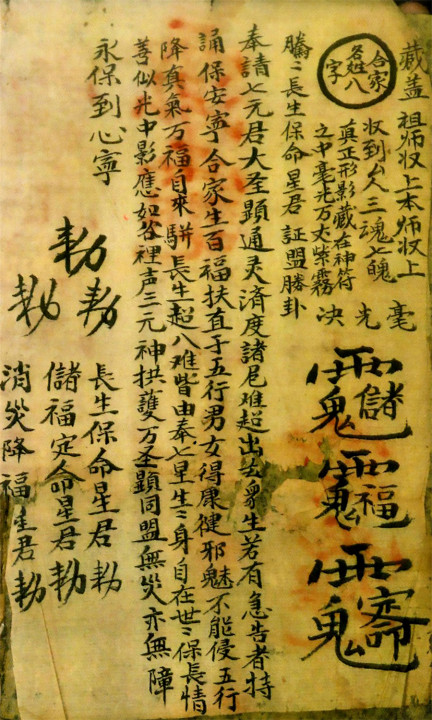 藏盖 祖师収上本师収上
合家
名姓八
字
収到厶人三魂七魄
真正形影藏在神符
之中毫光万丈紫霧
毫光決
騰〻長生保命星君 証盟勝卦
奉請七元君大圣顕通灵済度諸厄难超出苦衆生若有急告者持
誦保安寧合家生百福扶直于五行男女得康健邪魅不能侵五行
降真氣万福自來駢長生超八难皆由奉七星生〻身自在世〻保長情
善似光中影應如谷裡声三元神拱護万圣顕同盟無災亦無障
永保到心寧
勅勅勅
長生保命星君勅
儲福定命星君勅
消災降福星君勅